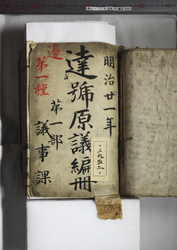 明治廿一年
達號原議編冊
第一部
議事課
第一種